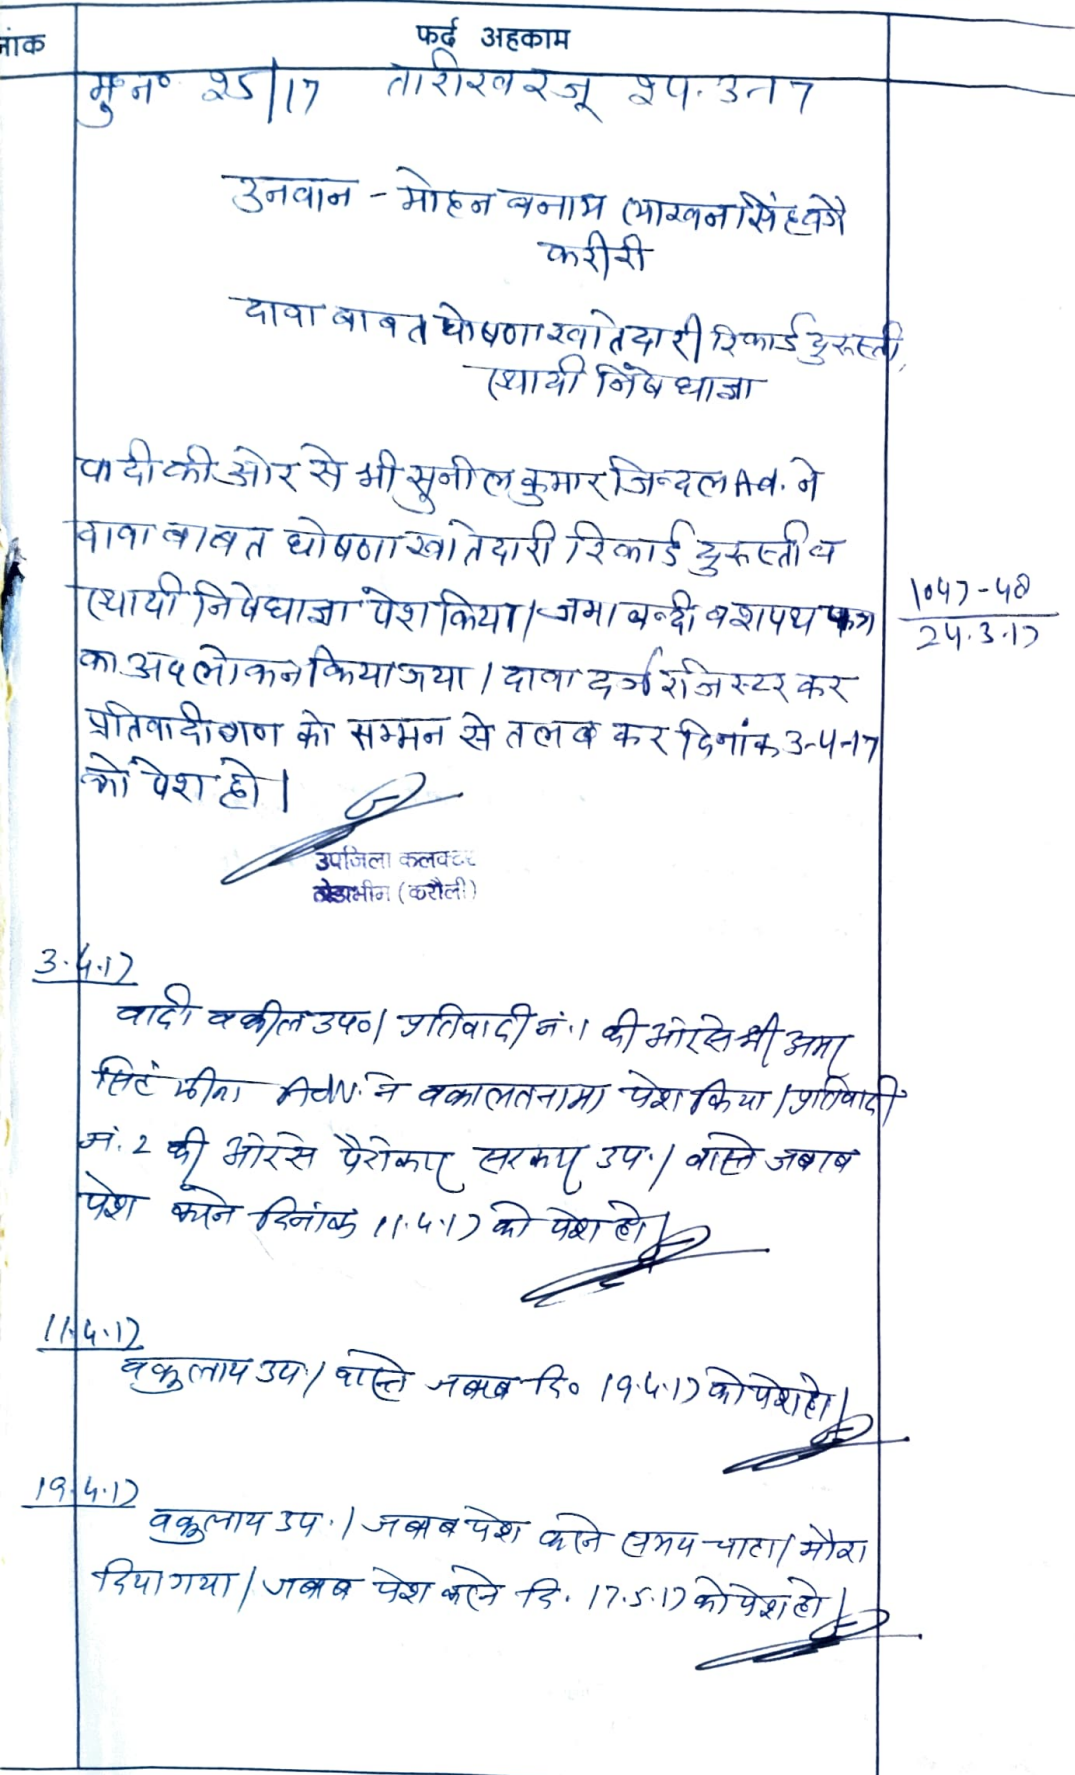 नांक
फर्द अहकाम
मु०न० 25/17 तारीख रजू 24.3.17
उनवान - मोहन बनाम लाखनसिंह वगै
करीरी
दावा बाबत घोषणा खातेदारी रिकार्ड दुरुस्ती,
स्थायी निषेधाज्ञा
वादी की ओर से श्री सुनील कुमार जिन्दल Ad. ने
दावा बाबत घोषणा खातेदारी रिकार्ड दुरुस्ती व
स्थायी निषेधाज्ञा पेश किया। जमाबन्दी व शपथ पत्र
का अवलोकन किया गया। दावा दर्ज रजिस्टर कर
प्रतिवादीगण को सम्मन से तलब कर दिनांक 3-4-17
को पेश हो।
1047-48
24.3.17
उपजिला कलक्टर
टोडाभीम (करौली)
3.4.17
वादी वकील उप०। प्रतिवादी नं.1 की ओर से श्री अमर
सिंह मीना Adv. ने वकालतनामा पेश किया। प्रतिवादी
नं. 2 की ओर से पैरोकार सरकार उप.। वास्ते जबाब
पेश करने दिनांक 11.4.17 को पेश हो।
11.4.17
वकुलाय उप.। वास्ते जबाब दि० 19.4.17 को पेश हो।
19.4.17
वकुलाय उप.। जबाब पेश करने समय चाहा। मौका
दिया गया। जबाब पेश करने दि. 17.5.17 को पेश हो।